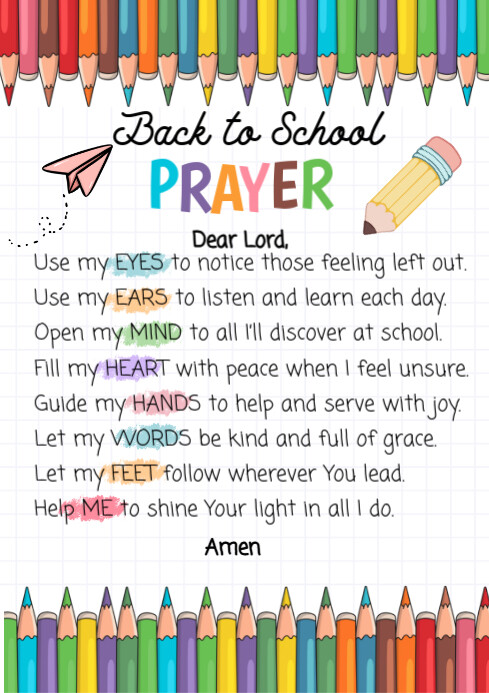 Back to School
PRAYER
Dear Lord,
Use my EYES to notice those feeling left out.
Use my EARS to listen and learn each day.
Open my MIND to all I'll discover at school.
Fill my HEART with peace when I feel unsure.
Guide my HANDS to help and serve with joy.
Let my WORDS be kind and full of grace.
Let my FEET follow wherever You lead.
Help ME to shine Your light in all I do.
Amen